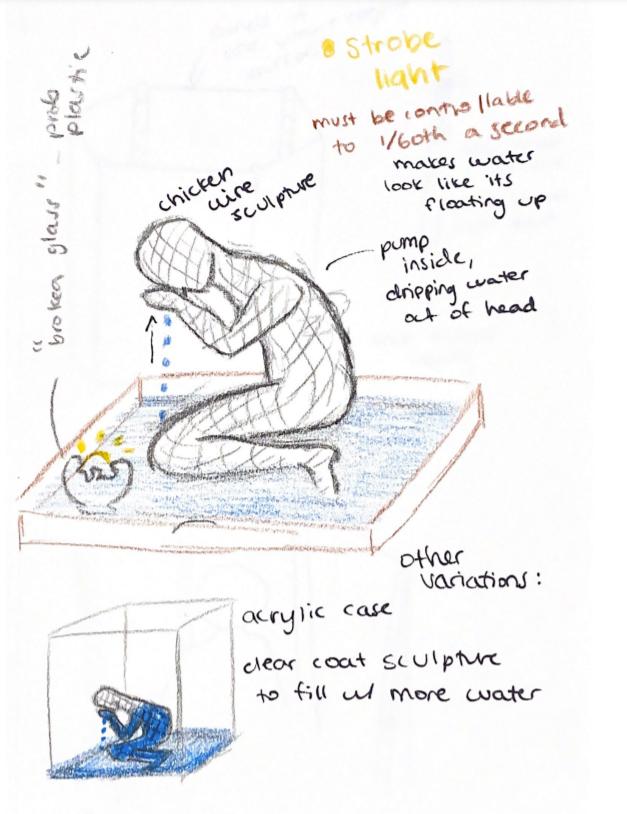 strobe
light
must be controllable
to 1/60th a second
makes water
look like its
floating up
chicken
wire
sculpture
pump
inside,
dripping water
out of head
"broken glass" - prob
plastic
other
variations:
acrylic case
clear coat sculpture
to fill w/ more water